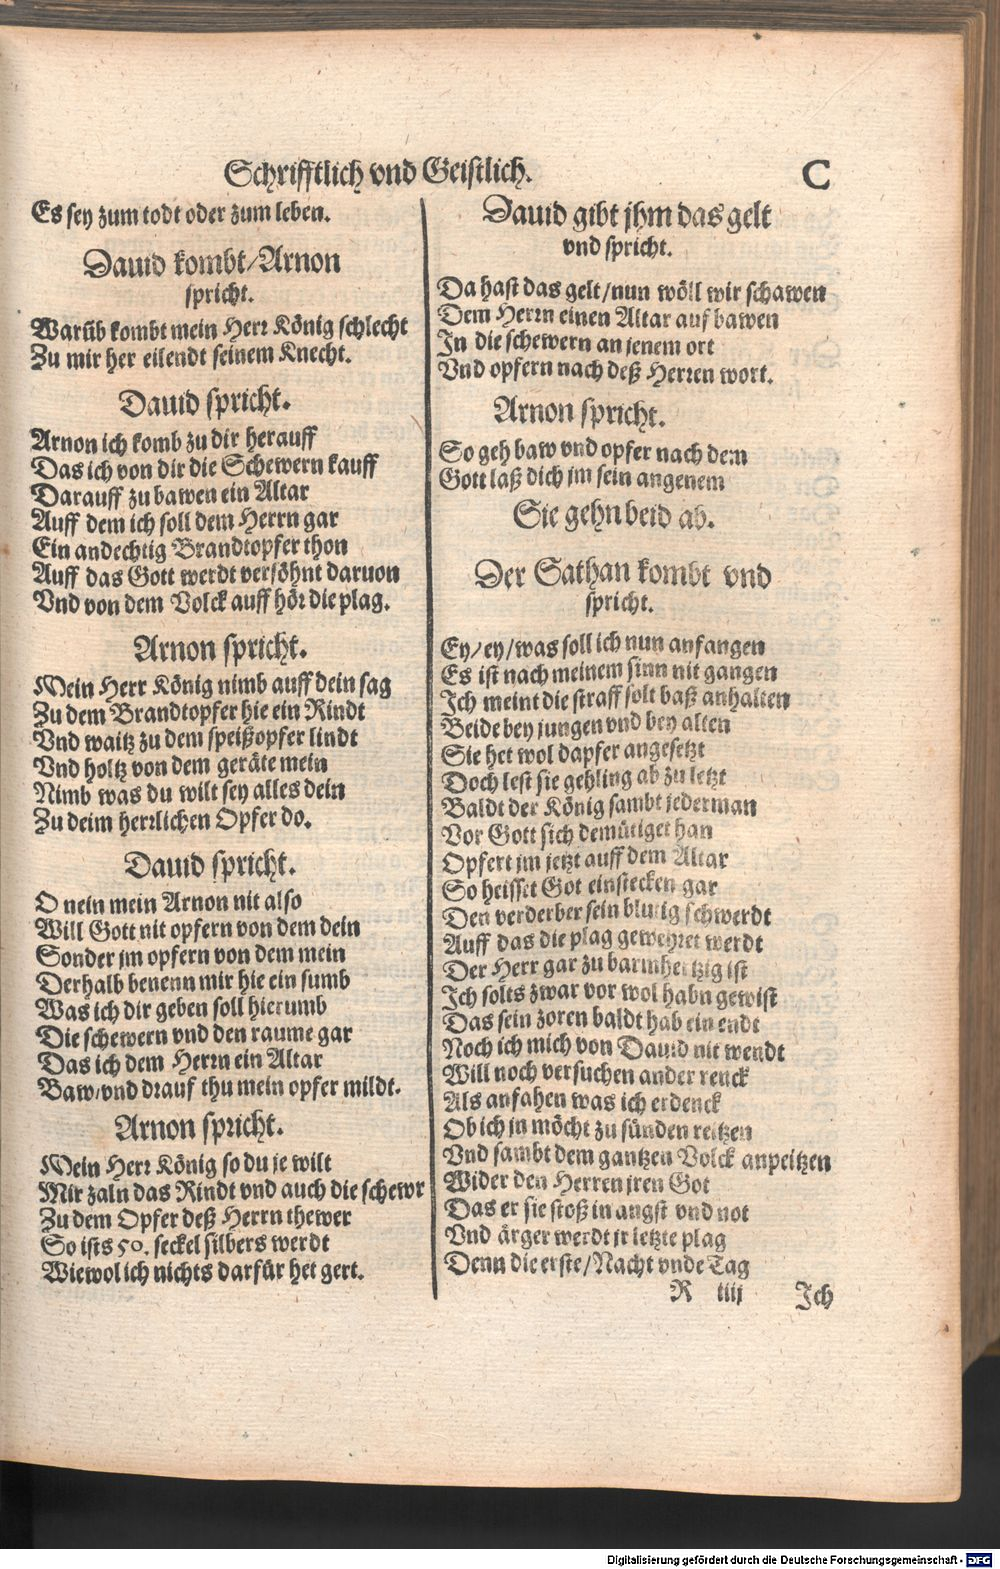 Schrifftlich vnd Geistlich. C
Es sey zum todt oder zum leben.
Dauid kombt/Arnon
spricht.
Warūb kombt mein Herr König schlecht
Zu mir her eilendt seinem Knecht.
Dauid spricht.
Arnon ich komb zu dir herauff
Das ich von dir die Schewern kauff
Darauff zu bawen ein Altar
Auff dem ich soll dem Herrn gar
Ein andechtig Brandtopfer thon
Auff das Gott werdt versöhnt daruon
Vnd von dem Volck auff hör die plag.
Arnon spricht.
Mein Herr König nimb auff dein sag
Zu dem Brandtopfer hie ein Rindt
Vnd waitz zu dem speißopfer lindt
Vnd holtz von dem geräte mein
Nimb was du wilt sey alles dein
Zu deim herrlichen Opfer do.
Dauid spricht.
O nein mein Arnon nit also
Will Gott nit opfern von dem dein
Sonder jm opfern von dem mein
Derhalb benenn mir hie ein sumb
Was ich dir geben soll hierumb
Die schewern vnd den raume gar
Das ich dem Herrn ein Altar
Baw/vnd drauf thu mein opfer mildt.
Arnon spricht.
Mein Herr König so du je wilt
Mir zaln das Rindt vnd auch die schewr
Zu dem Opfer deß Herrn thewer
So ists 50. seckel silbers werdt
Wiewol ich nichts darfür het gert.
Dauid gibt jhm das gelt
vnd spricht.
Da hast das gelt/nun wöll wir schawen
Dem Herrn einen Altar auf bawen
In die schewern an jenem ort
Vnd opfern nach deß Herren wort.
Arnon spricht.
So geh baw vnd opfer nach dem
Gott laß dich jm sein angenem
Sie gehn beid ab.
Der Sathan kombt vnd
spricht.
Ey/ey/was soll ich nun anfangen
Es ist nach meinem sinn nit gangen
Ich meint die straff solt baß anhalten
Beide bey jungen vnd bey alten
Sie het wol dapfer angesetzt
Doch lest sie gehling ab zu letzt
Baldt der König sambt jederman
Vor Gott sich demütiget han
Opfert jm jetzt auff dem Altar
So heisset Got einstecken gar
Den verderber sein blutig schwerdt
Auff das die plag geweh­ret werdt
Der Herr gar zu barmhertzig ist
Ich solts zwar vor wol habn gewist
Das sein zoren baldt hab ein endt
Noch ich mich von Dauid nit wendt
Will noch versuchen ander renck
Als anfahen was ich erdenck
Ob ich jn möcht zu sünden reitzen
Vnd sambt dem gantzen Volck anpeitzen
Wider den Herren jren Got
Das er sie stoß in angst vnd not
Vnd ärger werdt jr letzte plag
Denn die erste/Nacht vnde Tag
R iiij Ich
Digitalisierung gefördert durch die Deutsche Forschungsgemeinschaft - DFG